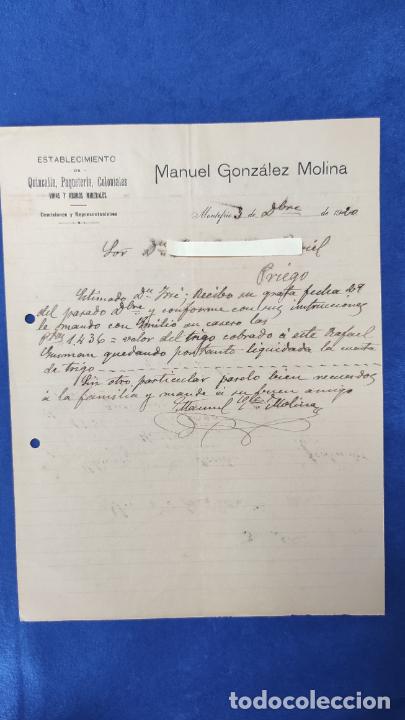 ESTABLECIMIENTO
DE
Quincalla, Paquetería, Coloniales
VINOS Y ABONOS MINERALES
Comisiones y Representaciones
Manuel González Molina
Montefrío 3 de Dbre de 1920
Sor Dn
Priego
Estimado Dn José; Recibo su grata fecha 29
del pasado Dbre y conforme con sus instrucciones
le mando con Emilio su casero las
Ptas 1.236 = valor del trigo cobrado á este Rafael
Guzman quedando por tanto liquidada la cuenta
de trigo
Sin otro particular paselo bien recuerdos
á la familia y mande á su buen amigo
Manuel Glez Molina
todocoleccion.net